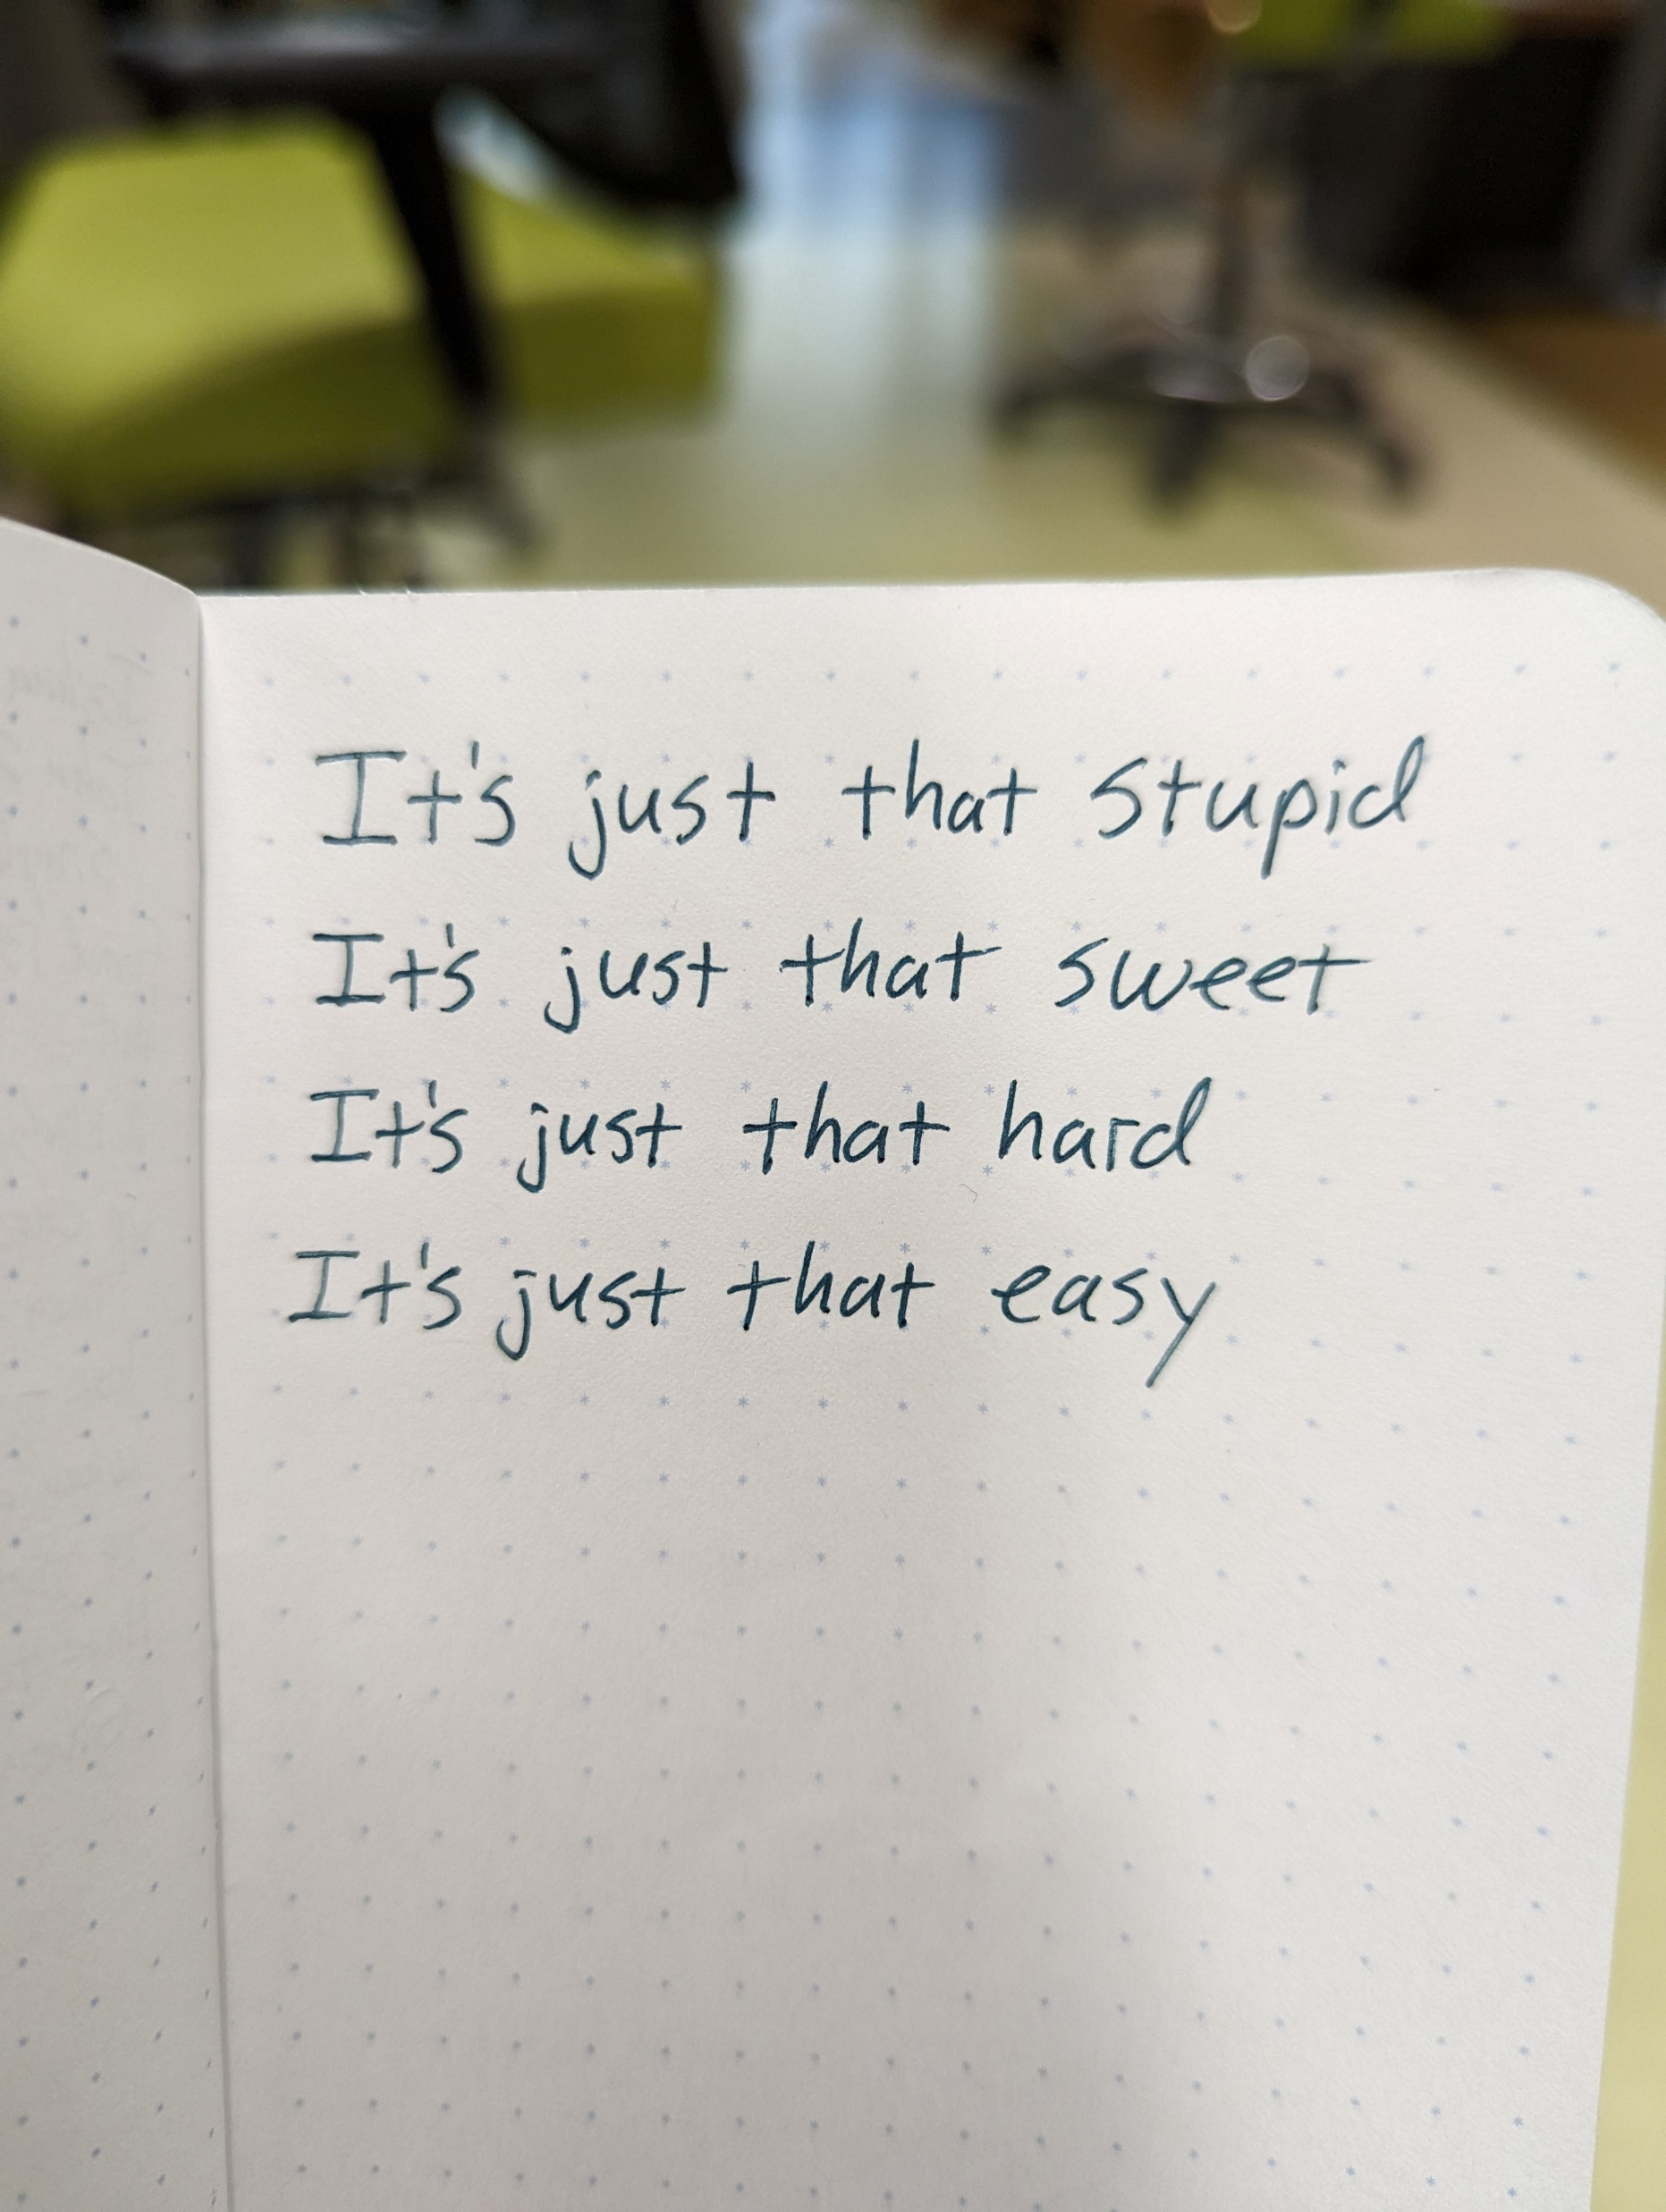 It's just that stupid
It's just that sweet
It's just that hard
It's just that easy